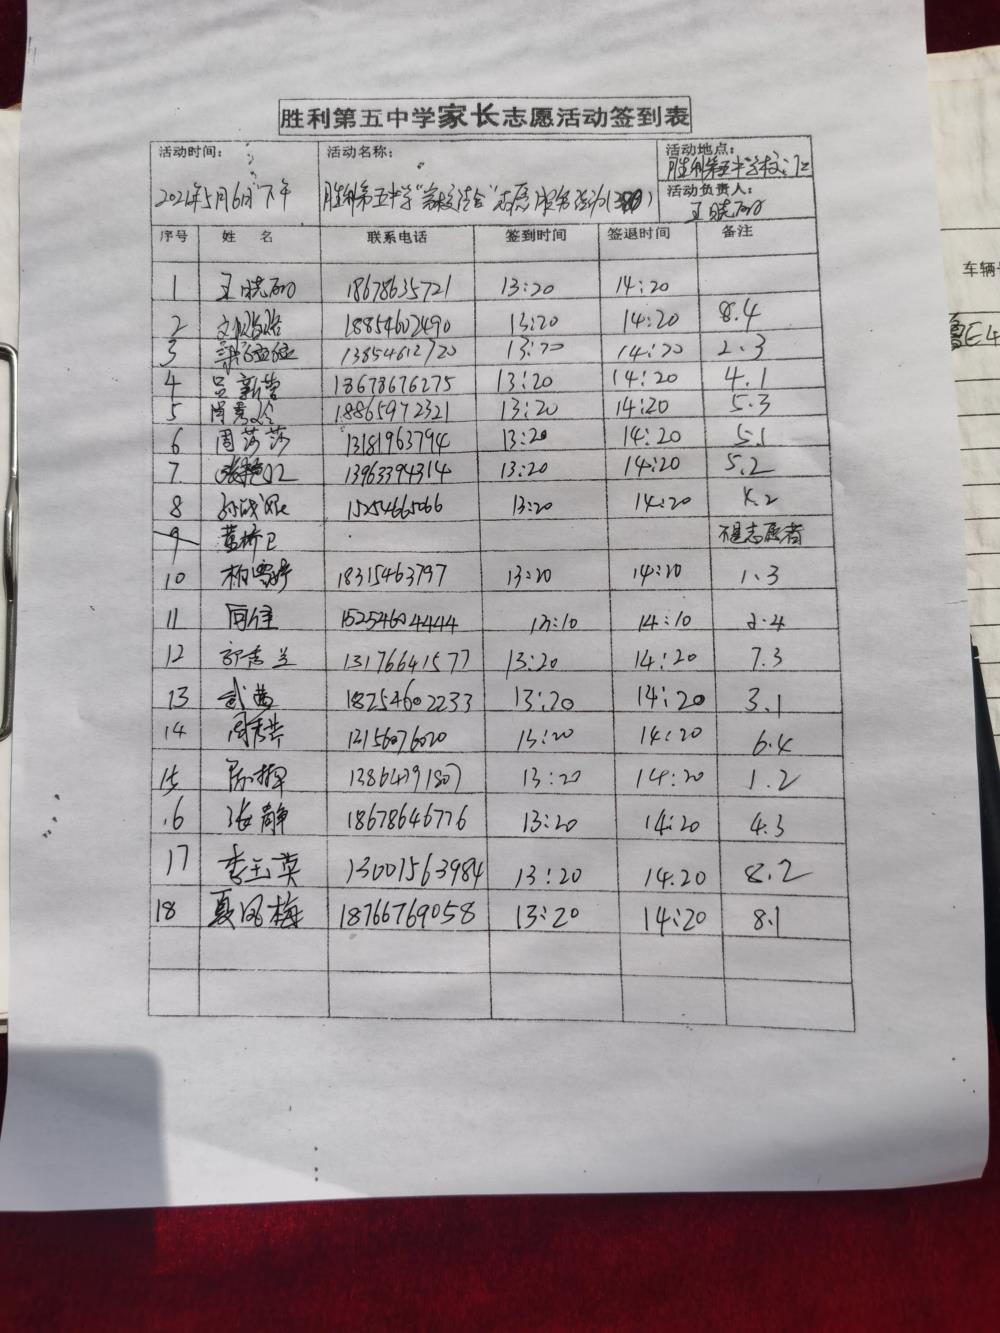 胜利第五中学家长志愿活动签到表
活动时间: 活动名称: 活动地点:
2021年5月6日下午 胜利第五中学"家校结合"志愿服务活动 胜利第五中学校门口
活动负责人:
王晓
序号 姓名 联系电话 签到时间 签退时间 备注
1 王晓 18678635721 13:20 14:20
2 18854602490 13:20 14:20 8.4
3 13854612720 13:20 14:20 2.3
4 吕新营 18678676275 13:20 14:20 4.1
5 18865972321 13:20 14:20 5.3
6 周莎莎 13181963794 13:20 14:20 5.1
7. 张艳 13963394314 13:20 14:20 5.2
8 15254665066 13:20 14:20 .2
9 桥卫 不是志愿者
10 柏雪婷 18315463797 13:20 14:20 1.3
11 15254604444 13:10 14:10 2.4
12 郭秀兰 13176641577 13:20 14:20 7.3
13 武茜 18254602233 13:20 14:20 3.1
14 周秀华 13:20 14:20 6.4
15 13864091807 13:20 14:20 1.2
16 张静 18678646776 13:20 14:20 4.3
17 李玉英 13001563984 13:20 14:20 8.2
18 夏凤梅 18766769058 13:20 14:20 8.1
车辆
鲁E4